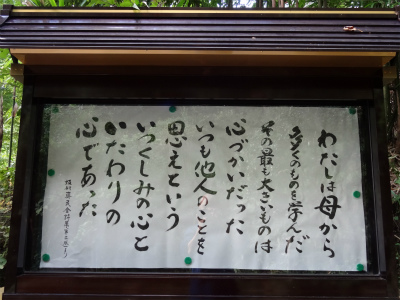 わたしは母から
多くのものを学んだ
その最も大きいものは
心づかいだった
いつも他人のことを
思えという
いつくしみの心と
いたわりの
心であった